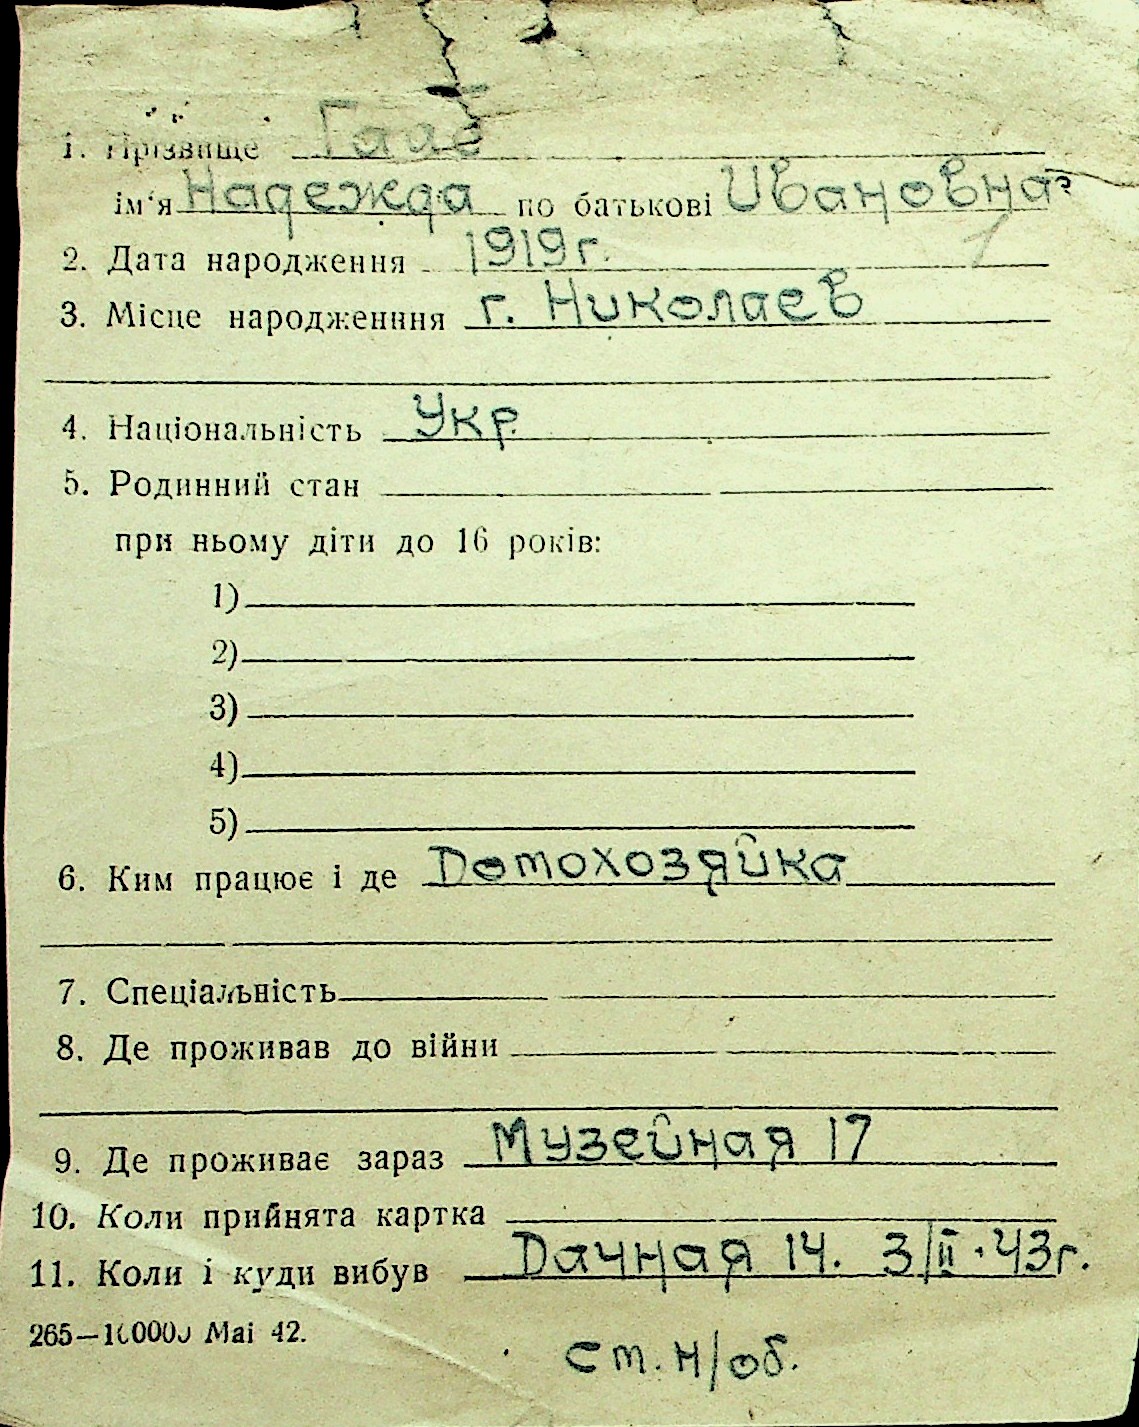 1. Прізвище Гаас
ім'я Надежда по батькові Ивановна
2. Дата народження 1919г.
3. Місце народженння г. Николаев
4. Національність Укр.
5. Родинний стан
при ньому діти до 16 років:
1)
2)
3)
4)
5)
6. Ким працює і де Домохозяйка
7. Спеціальність
8. Де проживав до війни
9. Де проживає зараз Музейная 17
10. Коли прийнята картка
11. Коли і куди вибув Дачная 14. 3/II·43г.
265—10000 Mai 42.
ст. н/об.